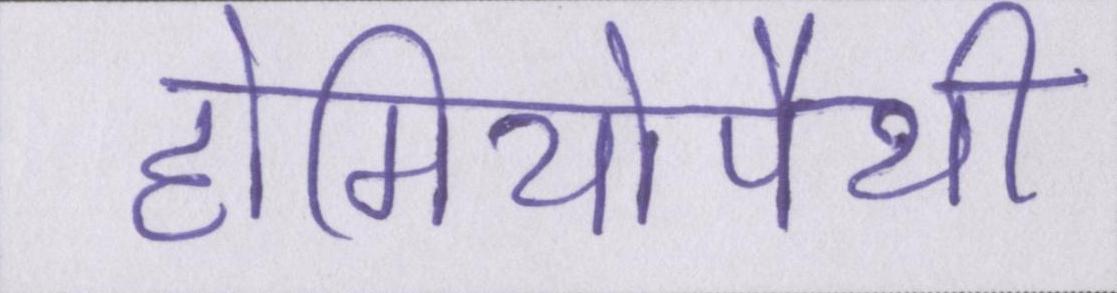 होमियोपैथी